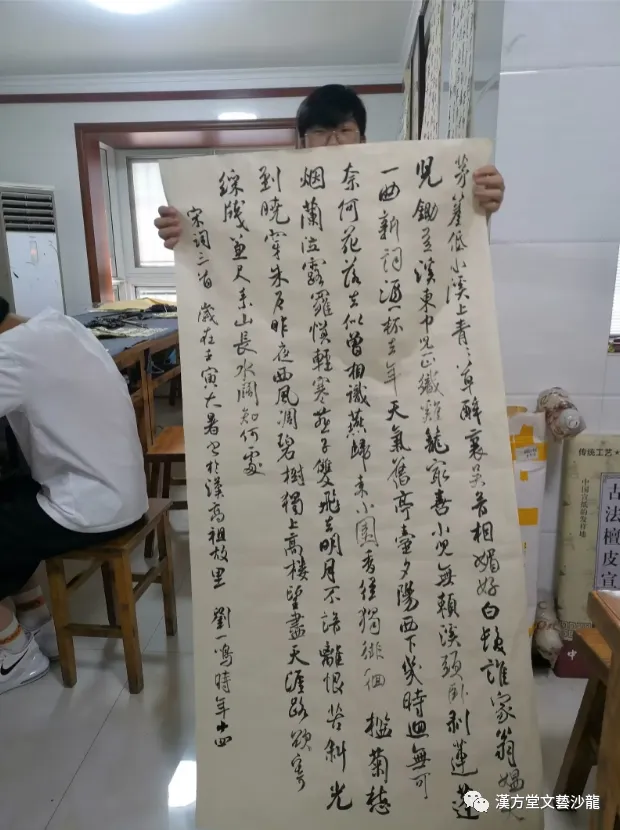 茅簷低小溪上青〻草醉裏吳音相媚好白髮誰家翁媼大
兒鋤豆溪東中兒正織雞籠最喜小兒無賴溪頭卧剥蓮蓬
一曲新詞酒一杯去年天氣舊亭臺夕陽西下幾時迴無可
奈何花落去似曾相識燕歸來小園香徑獨徘徊 檻菊愁
烟蘭泣露羅幙輕寒燕子雙飛去明月不諳離恨苦斜光
到曉穿朱户昨夜西風凋碧樹獨上高樓望盡天涯路欲寄
綵牋兼尺素山長水闊知何處
宋詞三首 歲在壬寅大暑書於漢高祖故里 劉一鳴時年十四
传统工艺
古法檀皮宣
漢方堂文藝沙龍